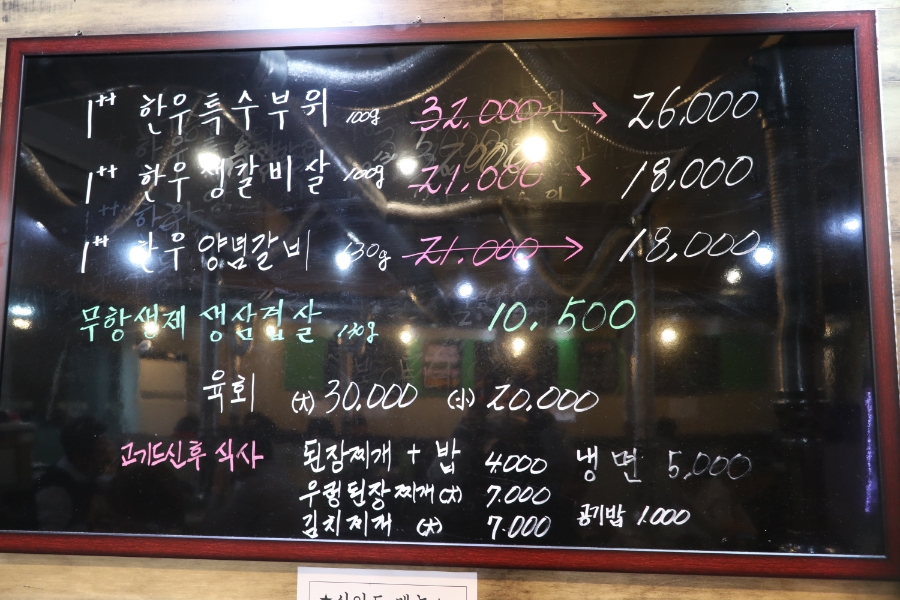 1++ 한우특수부위 100g 32,000 → 26,000
1++ 한우생갈비살 100g 21,000 > 18,000
1++ 한우양념갈비 130g 21,000 → 18,000
무항생제 생삼겹살 130g 10,500
육회 (大) 30,000 (小) 20,000
고기드신후 식사 된장찌개 + 밥 4000 냉면 5,000
우렁된장찌개(大) 7,000
김치찌개 (大) 7,000 공기밥 1,000